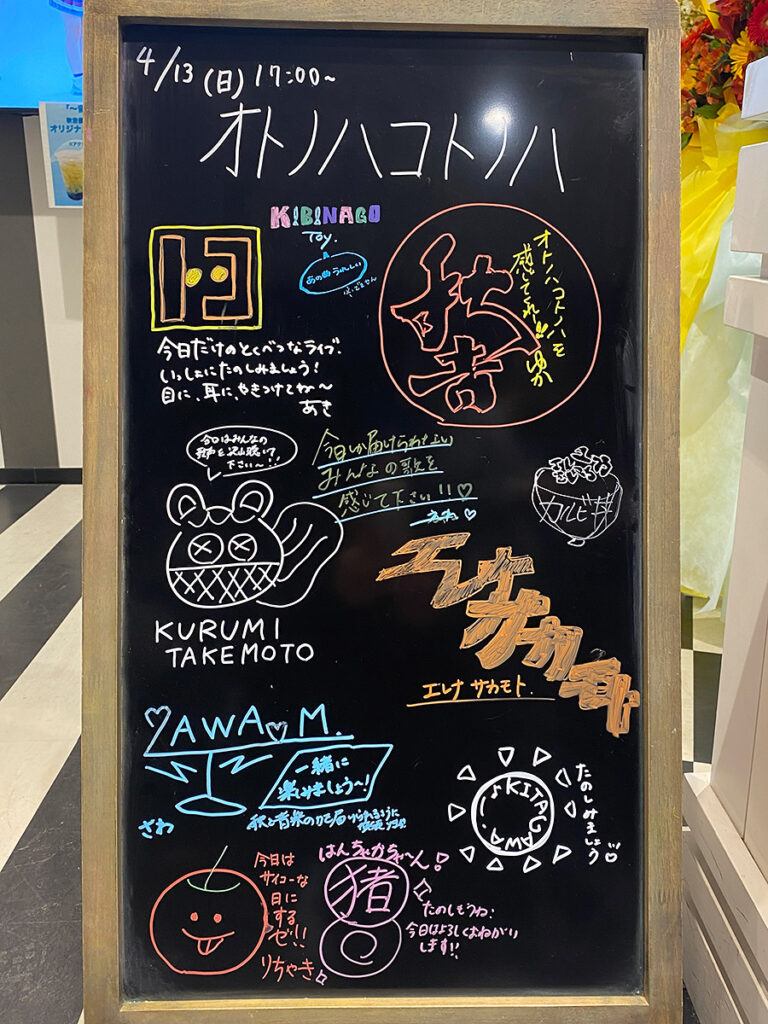 4/13 (日) 17:00~
オトノハコトノハ
KIBINAGO
Toy.
あの曲うれしい
今日だけのとくべつなライブ.
いっしょにたのしみましょう!
目に、耳に、やきつけてね〜
あき
オトノハコトノハを
感じてくれー!!! ゆか
今日はみんなの
歌声を沢山聴いて
下さい〜!!
今日しか届けられない
みんなの歌を
感じて下さい!!♡
カルビ丼
KURUMI
TAKEMOTO
エレナ サカモト
エレナ サカモト.
SAWA♡M.
一緒に
楽しみましょう〜!
さわ
KITAGAWA.
たのしみましょう
今日は
サイコーな
日に
する
ゼ!!
りちゃき
はんちゃかちゃ〜ん!
猪
たのしもうね.
今日はよろしくおねがい
します!!